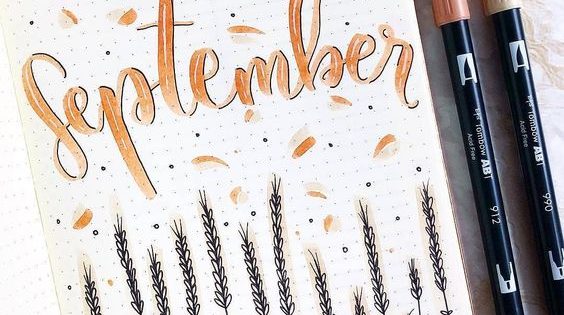 September
Tombow ABT
Acid Free
912
Tombow ABT
Acid Free
990